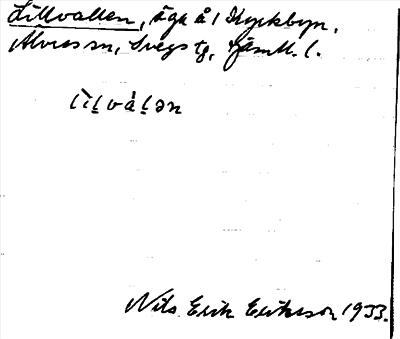 Lillvallen, äga å i Kyrkbyn,
Älvros sn, Svegs tg, Jämtl. l.
lìlvàlən
Nils Erik Eriksson 1933.